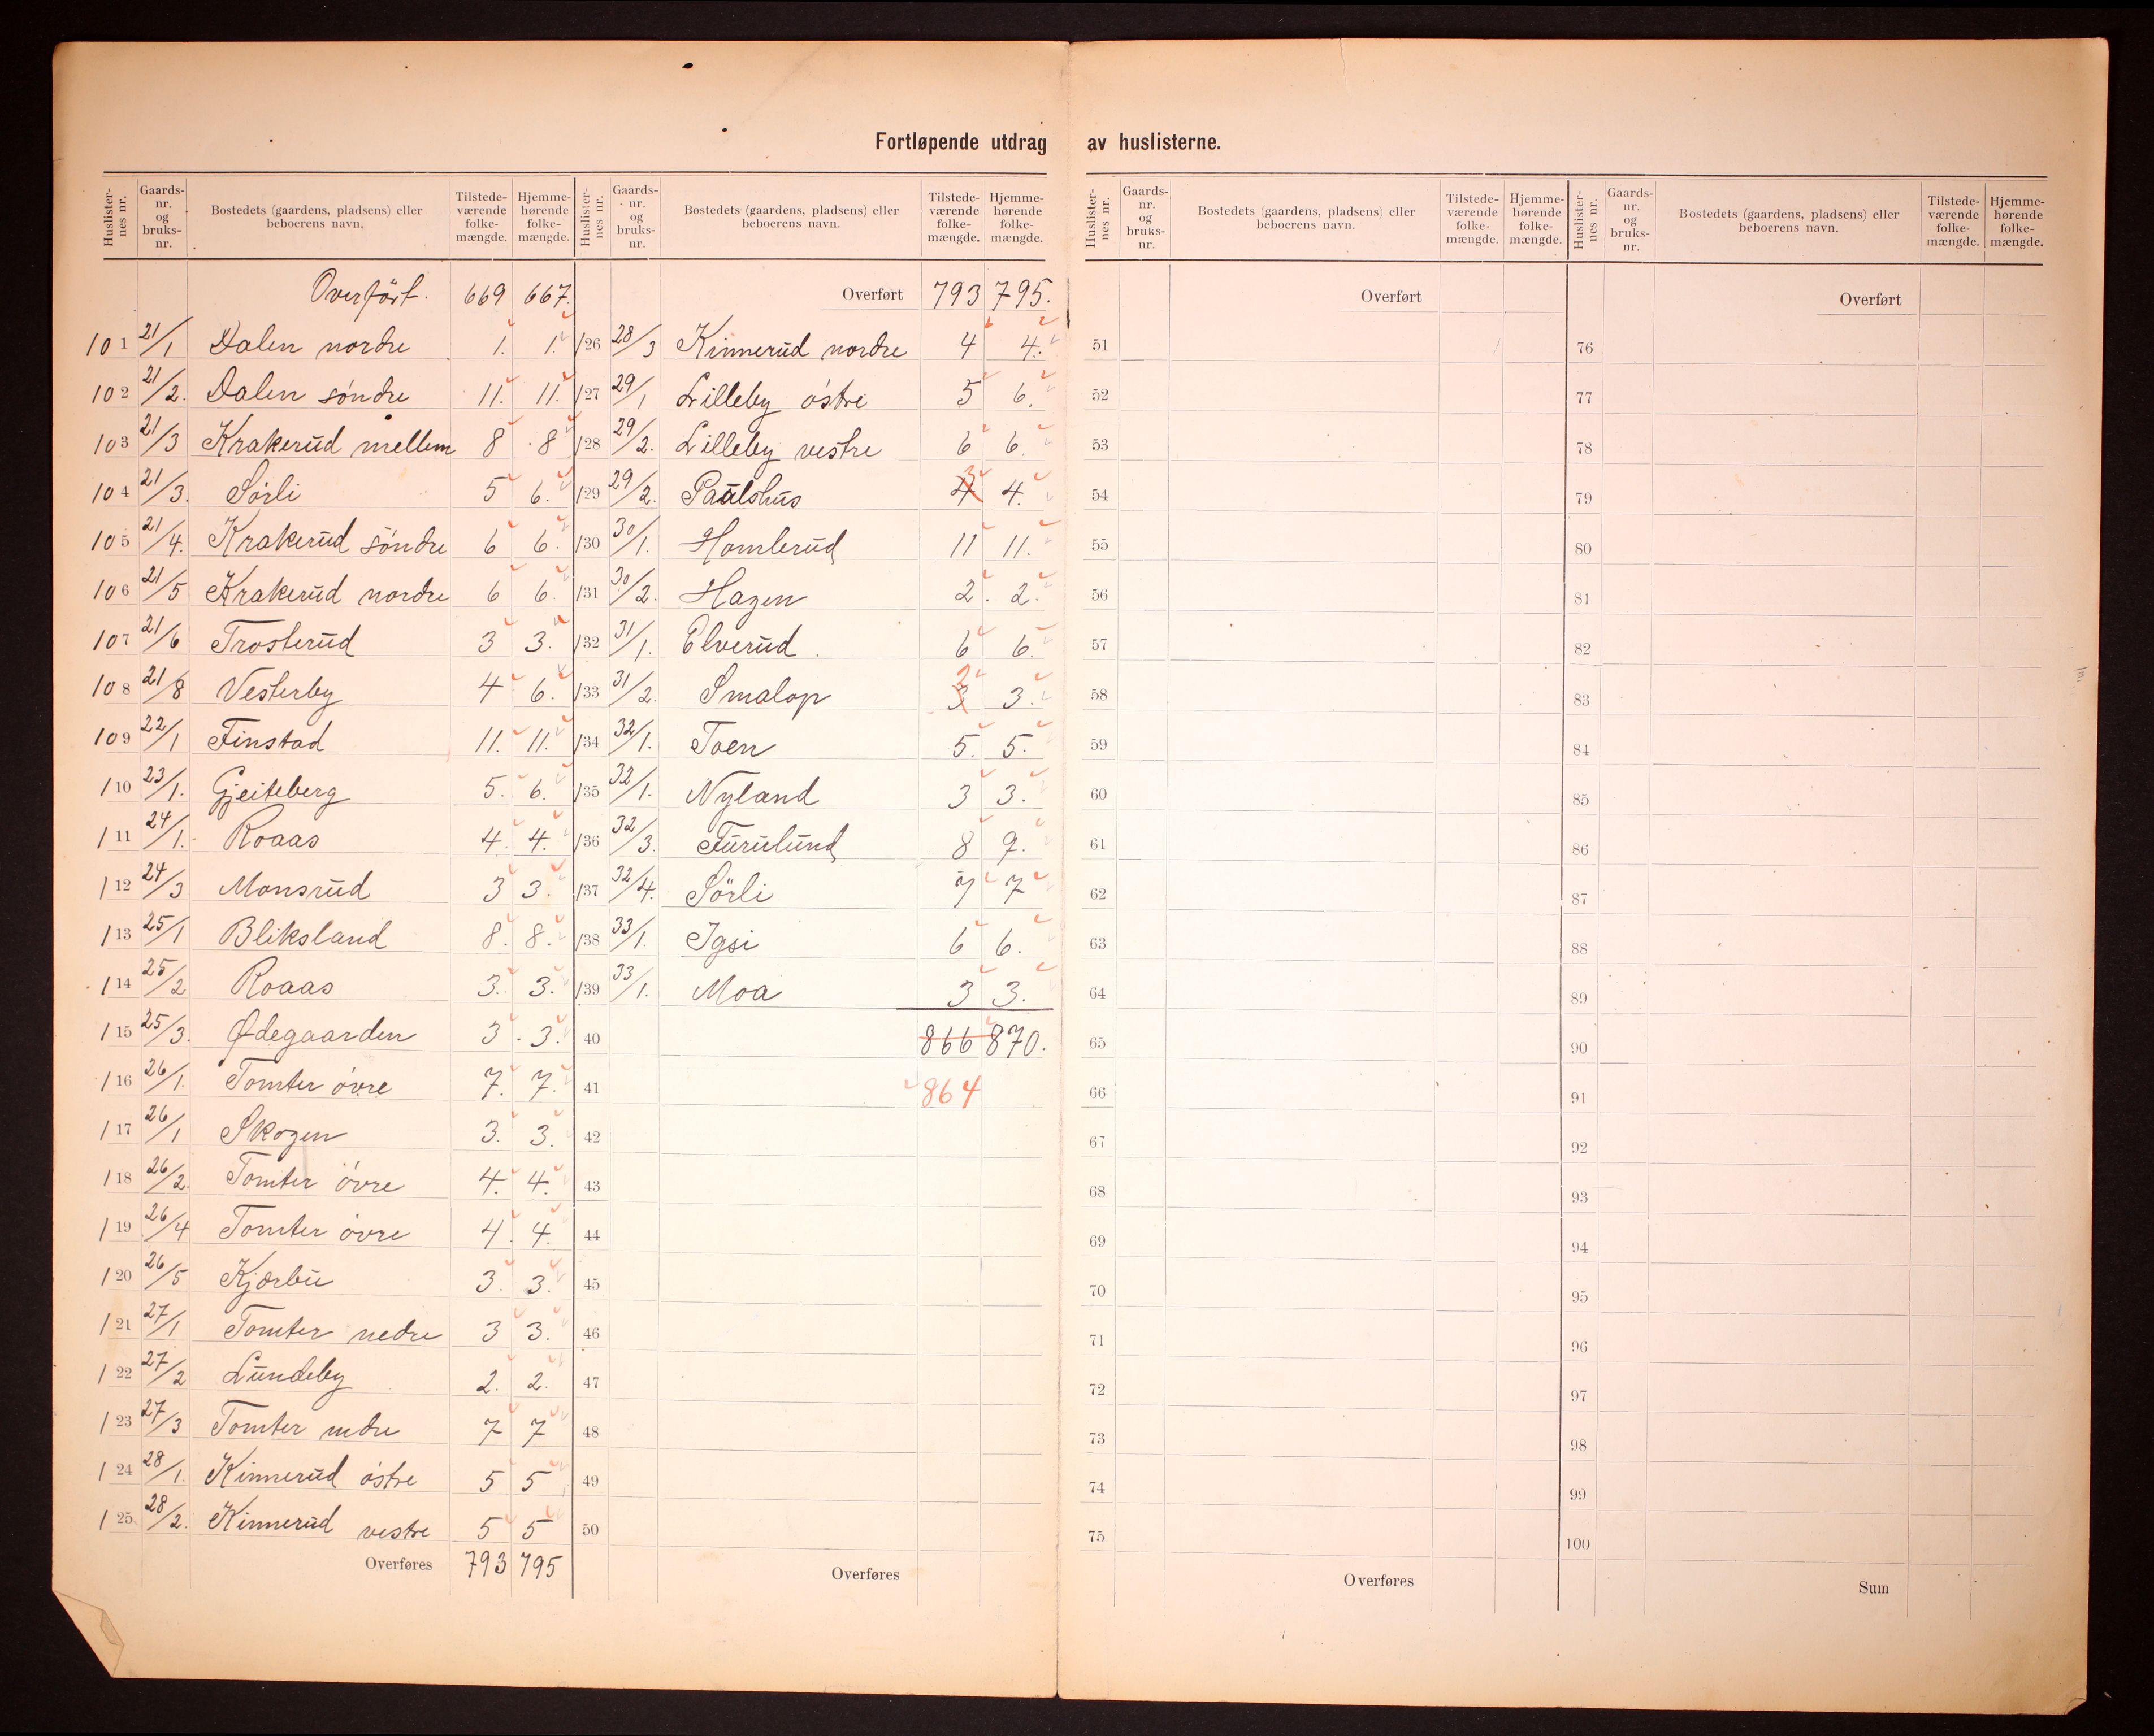 Fortløpende utdrag av huslisterne.
Huslister-nes nr. Gaards-nr. og bruks-nr. Bostedets (gaardens, pladsens) eller beboerens navn. Tilstede-værende folke-mængde. Hjemme-hørende folke-mængde.
Overført. 669 667.
101 21/1 Dalen nordre 1. 1.
102 21/2. Dalen söndre 11. 11.
103 21/3 Krakerud mellem 8 8
104 21/3. Sörli 5 6.
105 21/4. Krakerud söndre 6 6.
106 21/5 Krakerud nordre 6 6.
107 21/6 Trosterud 3 3.
108 21/8 Vesterby 4 6.
109 22/1 Finstad 11. 11.
110 23/1. Gjeiteberg 5. 6.
111 24/1. Roaas 4. 4.
112 24/3 Monsrud 3 3.
113 25/1 Bliksland 8. 8.
114 25/2 Roaas 3. 3.
115 25/3. Ødegaarden 3. 3.
116 26/1. Tomter övre 7. 7.
117 26/1 Skogen 3. 3.
118 26/2. Tomter övre 4. 4.
119 26/4 Tomter övre 4. 4.
120 26/5 Kjærbu 3. 3.
121 27/1 Tomter nedre 3 3.
122 27/2 Lundeby 2. 2.
123 27/3 Tomter nedre 7 7
124 28/1. Kinnerud östre 5 5
125 28/2. Kinnerud vestre 5 5
Overføres 793 795
Huslister-nes nr. Gaards-nr. og bruks-nr. Bostedets (gaardens, pladsens) eller beboerens navn. Tilstede-værende folke-mængde. Hjemme-hørende folke-mængde.
Overført 793 795.
126 28/3 Kinnerud nordre 4 4.
127 29/1 Lilleby östre 5 6.
128 29/2. Lilleby vestre 6 6.
129 29/2. Paulshus 4 3 4.
130 30/1. Homlerud 11 11.
131 30/2. Hagen 2. 2.
132 31/1. Elverud. 6 6.
133 31/2. Smalop 3 2 3.
134 32/1. Toen 5. 5.
135 32/1. Nyland 3 3.
136 32/3. Furulund 8 9.
137 32/4. Sörli 7 7
138 33/1. Igsi 6 6.
139 33/1. Moa 3 3.
40 866 870.
41 864
42
43
44
45
46
47
48
49
50
Overføres
Huslister-nes nr. Gaards-nr. og bruks-nr. Bostedets (gaardens, pladsens) eller beboerens navn. Tilstede-værende folke-mængde. Hjemme-hørende folke-mængde.
Overført
51
52
53
54
55
56
57
58
59
60
61
62
63
64
65
66
67
68
69
70
71
72
73
74
75
Overføres
Huslister-nes nr. Gaards-nr. og bruks-nr. Bostedets (gaardens, pladsens) eller beboerens navn. Tilstede-værende folke-mængde. Hjemme-hørende folke-mængde.
Overført
76
77
78
79
80
81
82
83
84
85
86
87
88
89
90
91
92
93
94
95
96
97
98
99
100
Sum